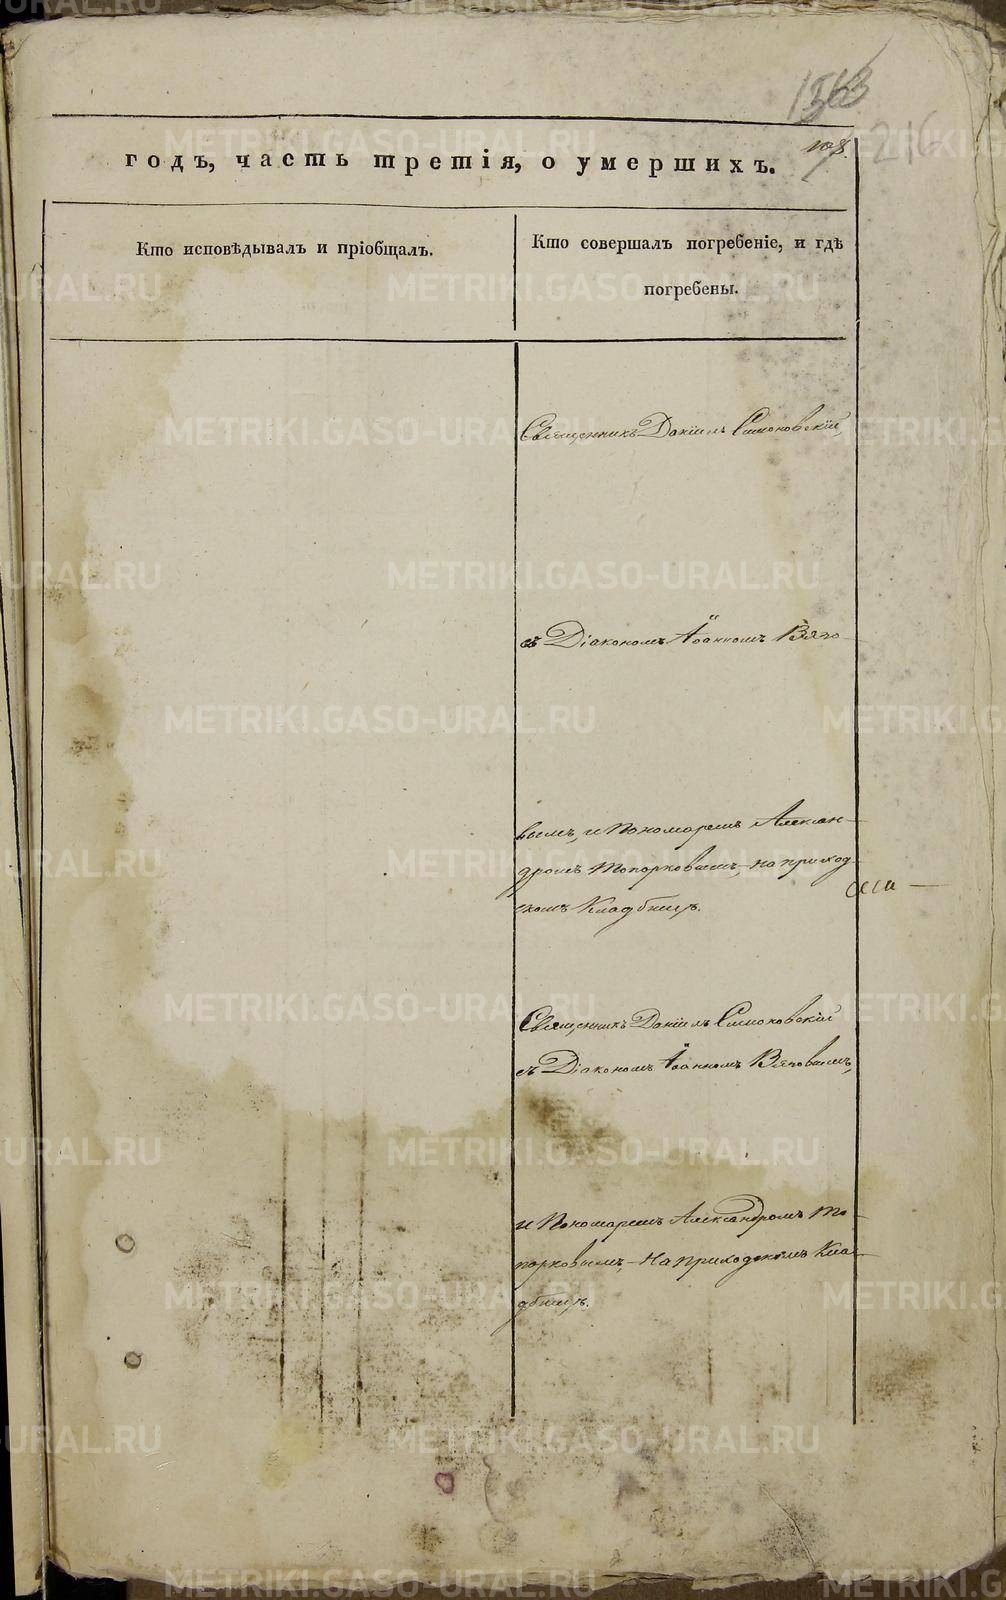 1563
108.
216
годъ, часть третія, о умершихъ.
Кто исповѣдывалъ и пріобщалъ.
Кто совершалъ погребеніе, и гдѣ
погребены.
Священникъ Даніилъ Симоновскій,
съ Діакономъ Іоанномъ Вязо-
вымъ, и Пономаремъ Алексан-
дромъ Топорковымъ, на приход-
скомъ Кладбищѣ.
Священникъ Даніилъ Симоновскій
съ Діакономъ Іоанномъ Вязовымъ,
и Пономаремъ Александромъ То-
порковымъ, на приходскомъ Кла-
дбищѣ.
METRIKI.GASO-URAL.RU